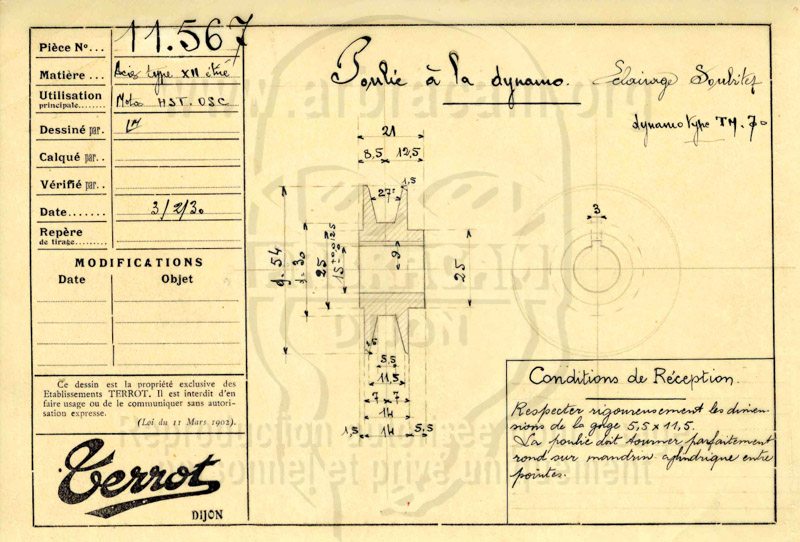 Pièce No... 11.567
Matière... Acier type XII étiré
Utilisation
principale.... Moto HST. OSC
Dessiné par. LM
Calqué par..
Vérifié par..
Date....... 3/2/30
Repère
de tirage.....
MODIFICATIONS
Date Objet
Ce dessin est la propriété exclusive des
Etablissements TERROT. Il est interdit d'en
faire usage ou de le communiquer sans autori-
sation expresse.
(Loi du 11 Mars 1902).
Terrot
DIJON
Poulie à la dynamo. Eclairage Soubitez
dynamo type TM. 70
21
8,5 12,5
1,5
27°
3
d. 54
d. 30
25
15
9
25
5,5
11,5
7 x 7
14
1,5 14 5,5
Conditions de Réception.
Respecter rigoureusement les dimen-
sions de la gorge 5,5 x 11,5.
La poulie doit tourner parfaitement
rond sur mandrin cylindrique entre
pointes.
ABRACAM
DIJON